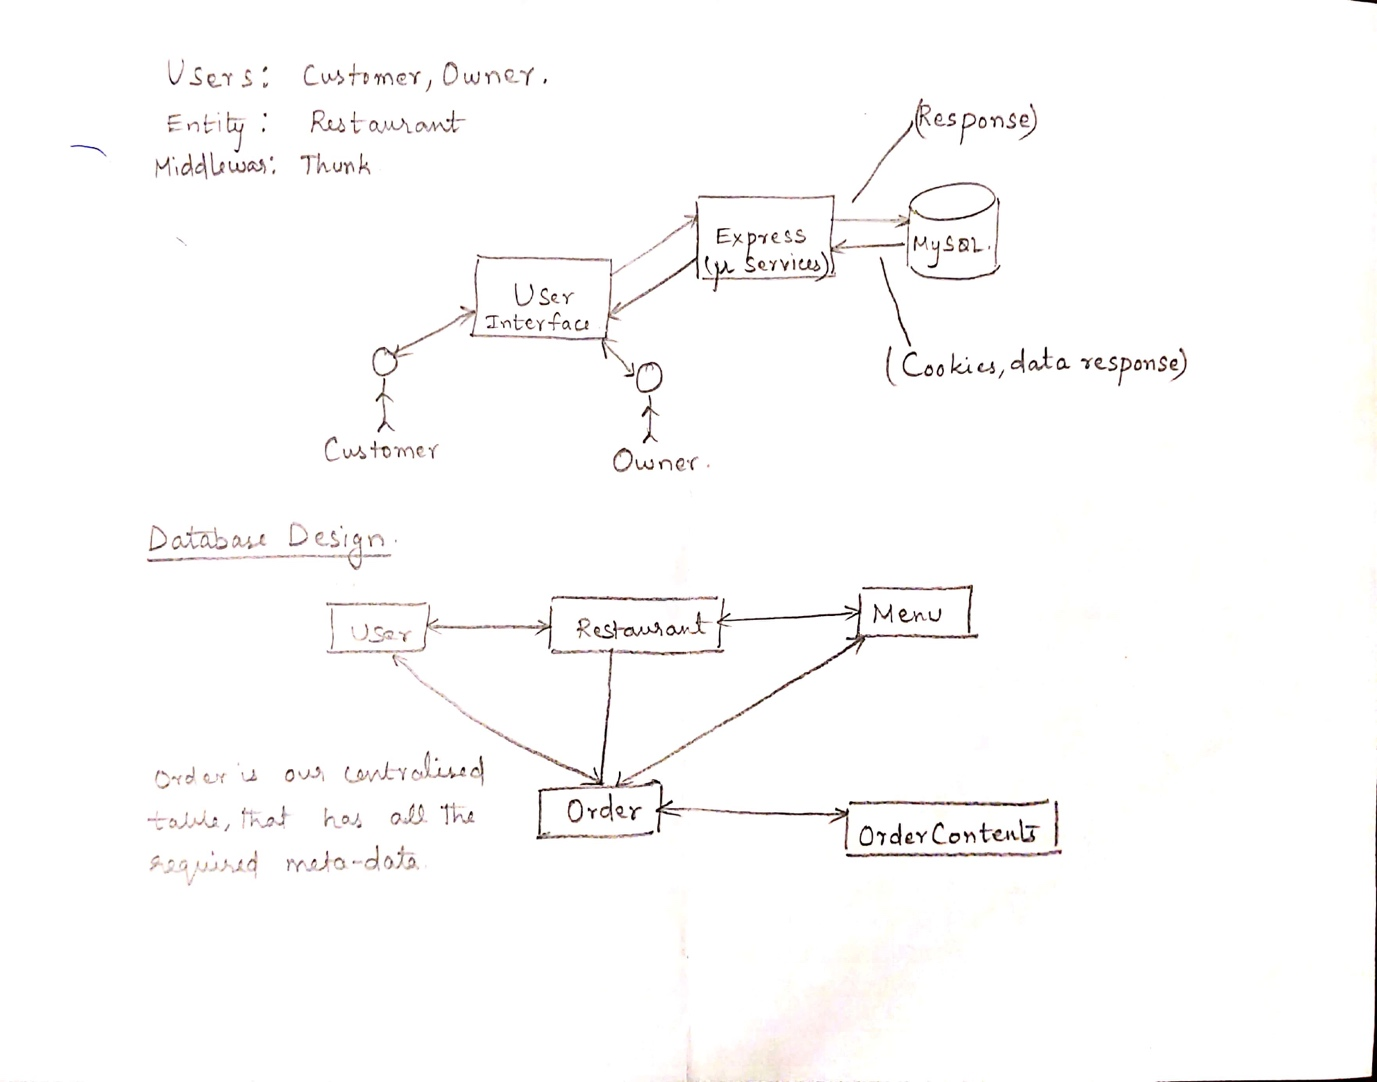 Users: Customer, Owner.
Entity: Restaurant
Middlewar: Thunk
(Response)
Express
(µ Services)
MySQL.
User
Interface
(Cookies, data response)
Customer
Owner.
Database Design.
User
Restaurant
Menu
Order is our centralised
table, that has all the
required meta-data.
Order
OrderContents